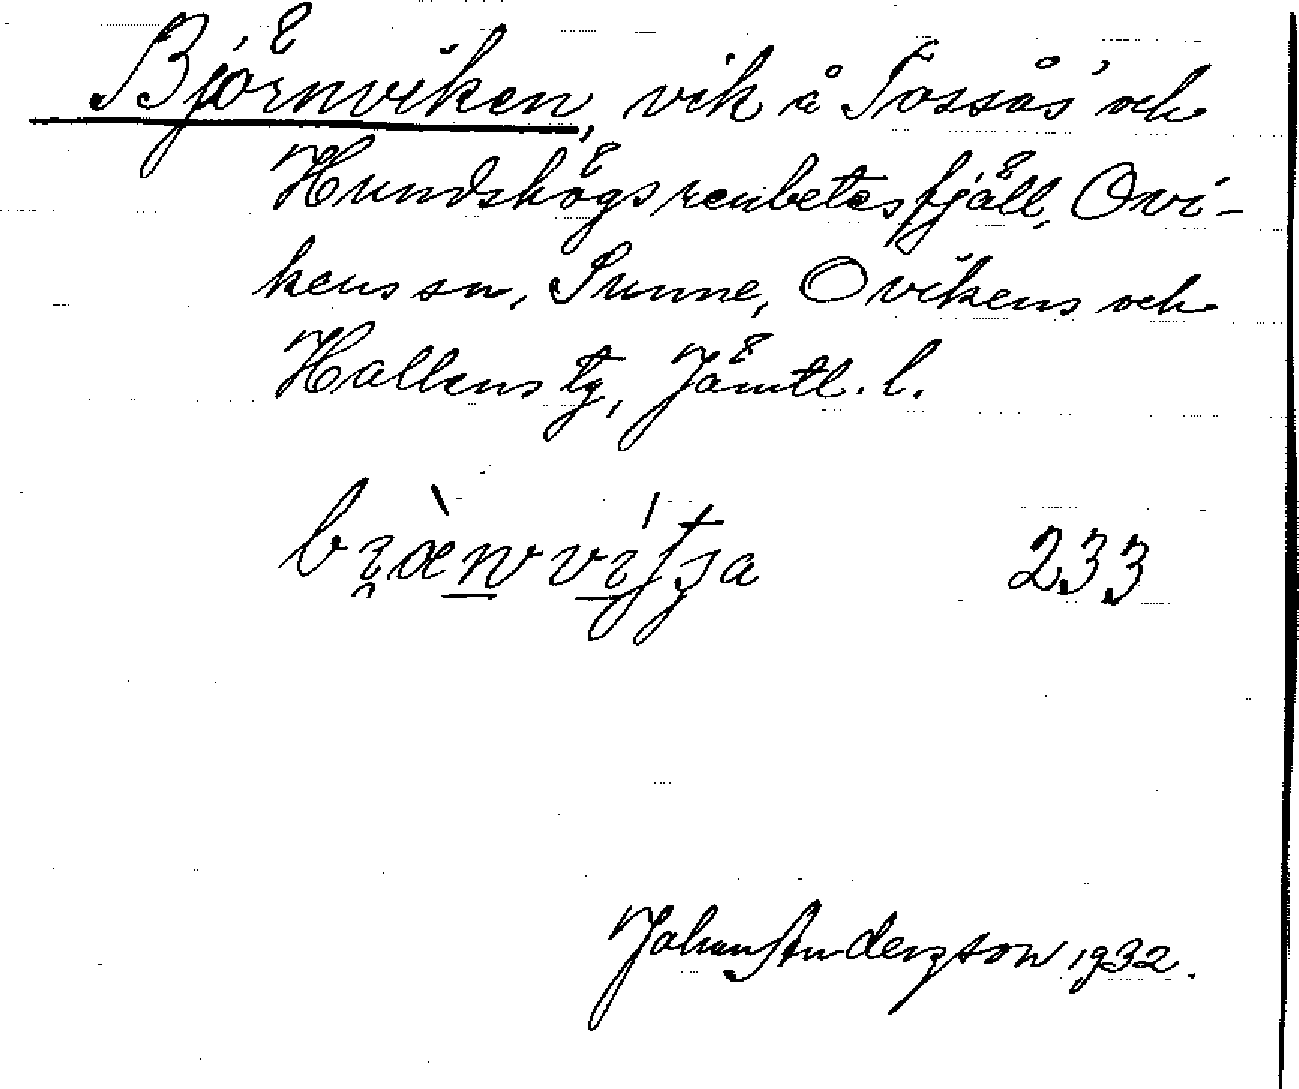 Björnviken, vik å Tossås och
Hundshögs renbetesfjäll, Ovi-
kens sn, Sunne, Ovikens och
Hallens tg, Jämtl. l.
233
Johan Anderzson 1932.